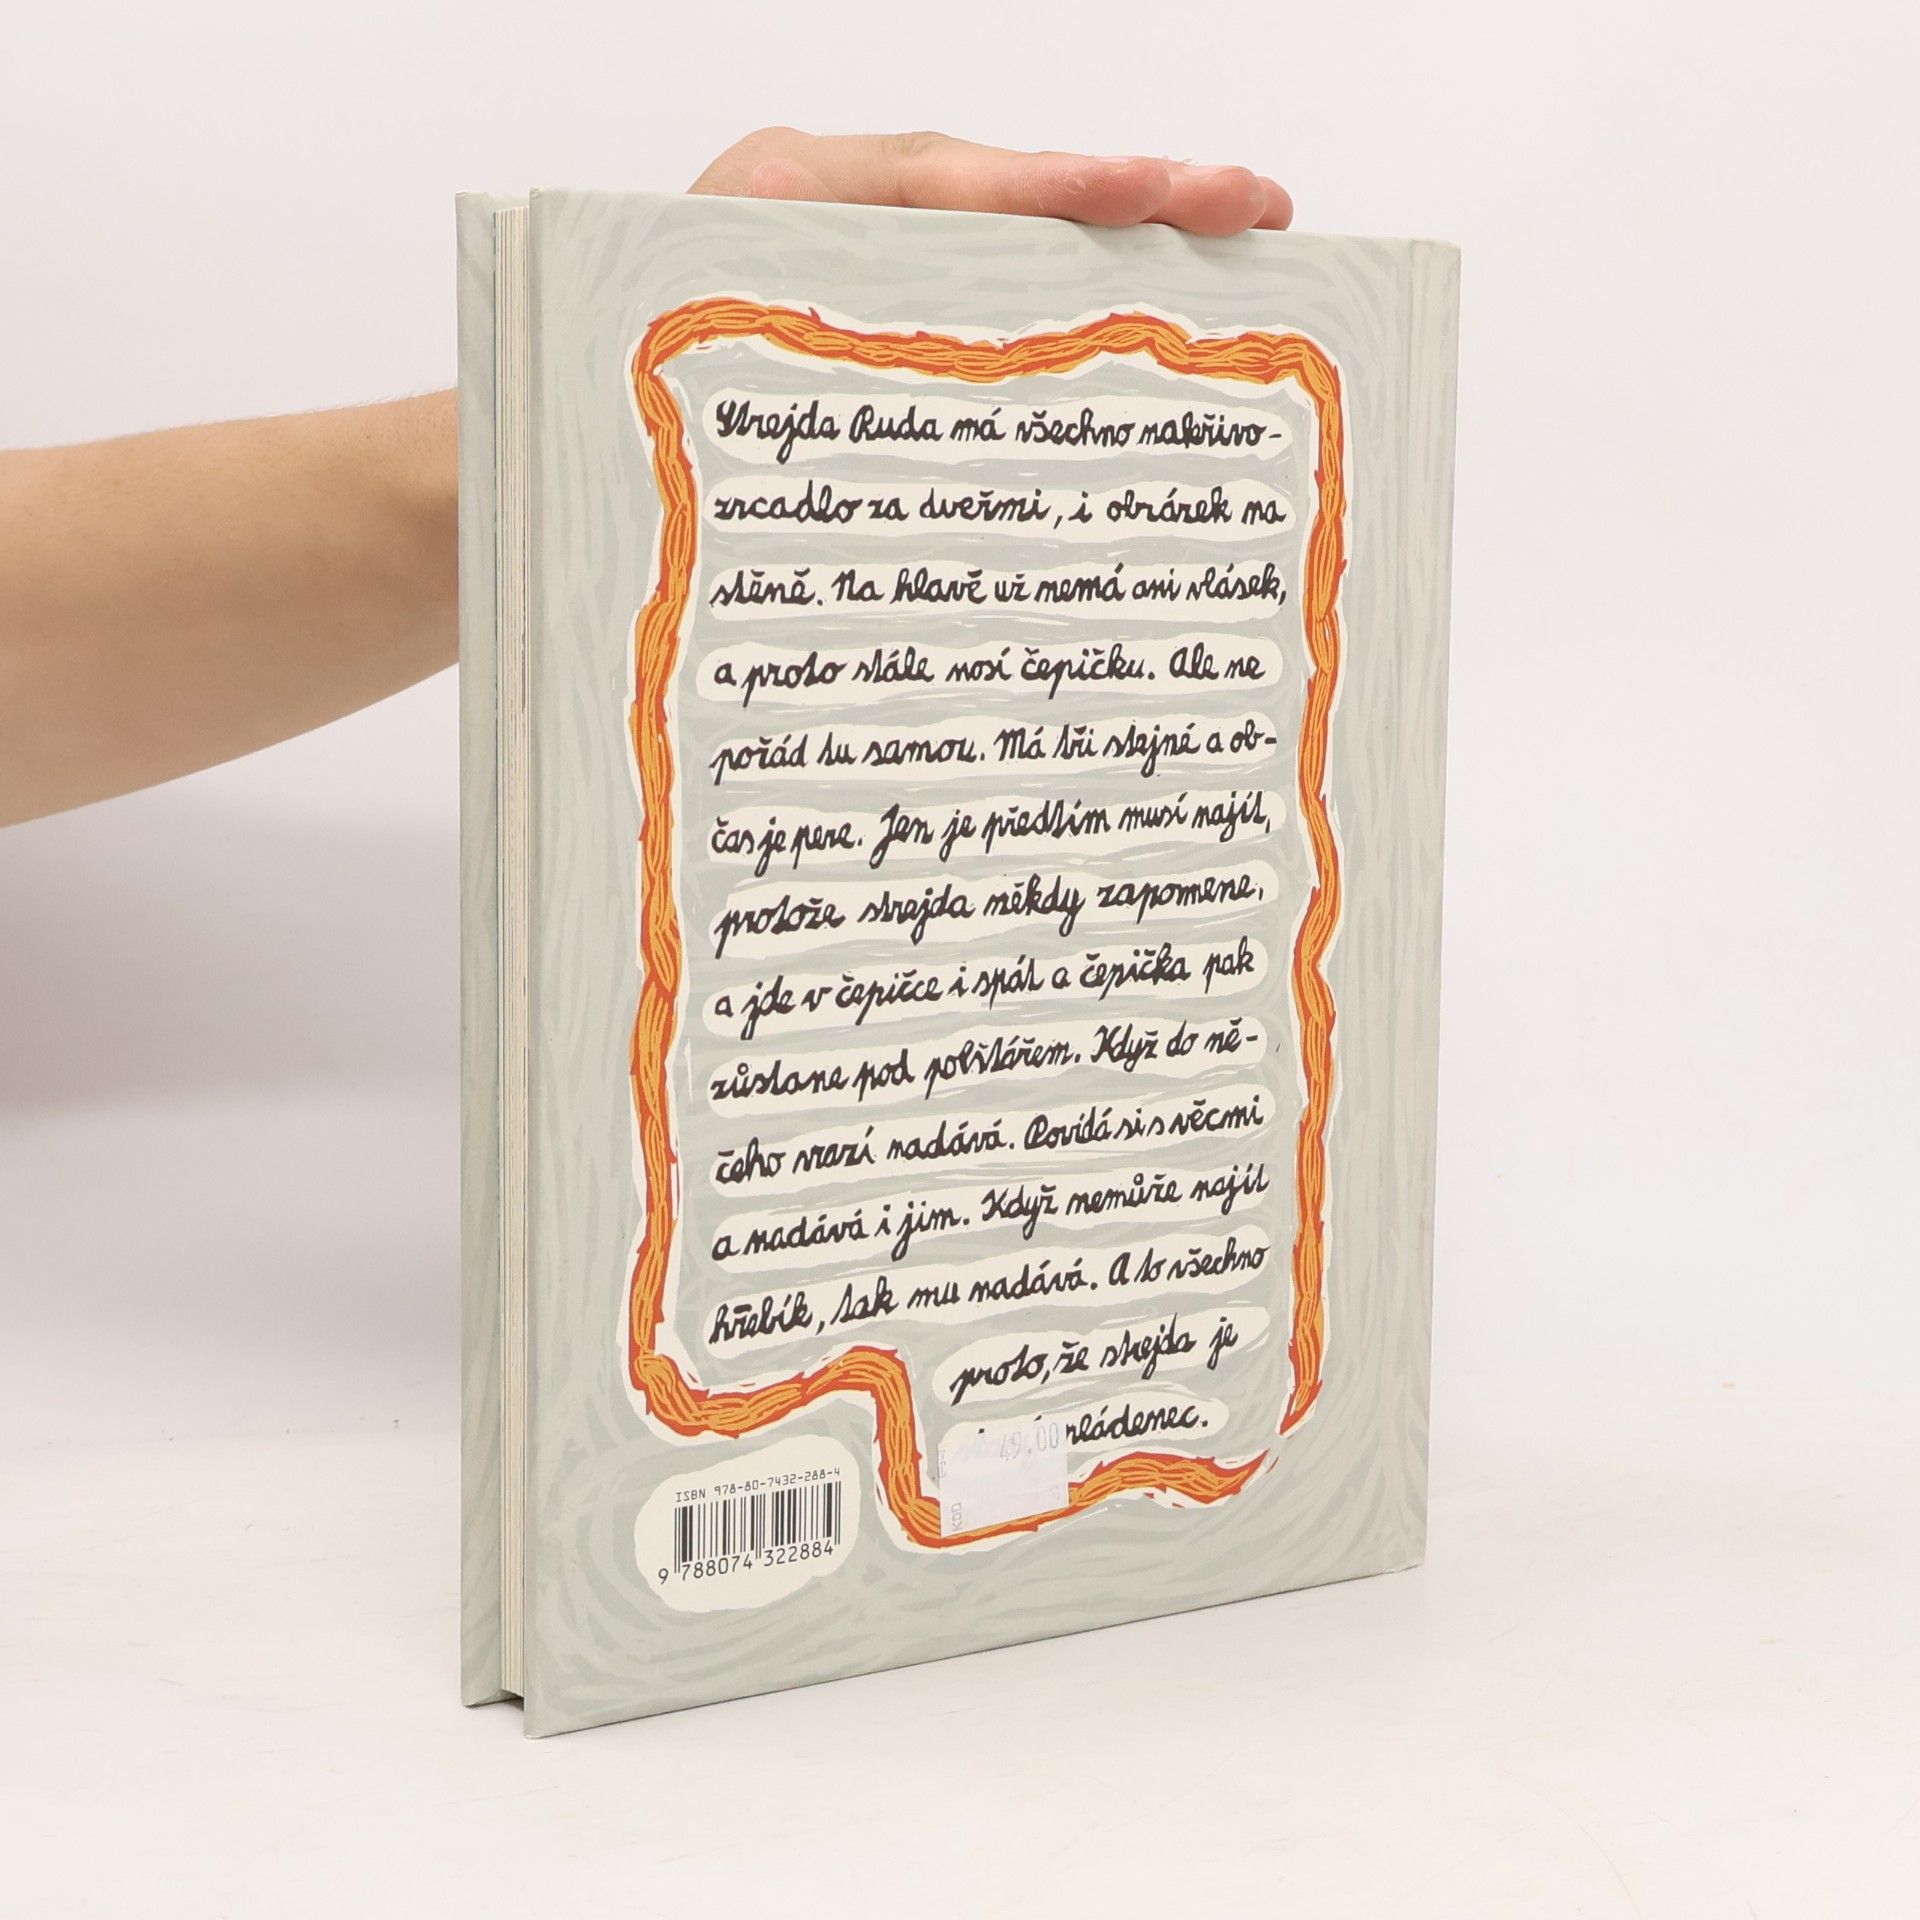 Strejda Ruda má všechno nakřivo-
zrcadlo za dveřmi, i obrázek na
stěně. Na hlavě už nemá ani vlásek,
a proto stále nosí čepičku. Ale ne
pořád tu samou. Má tři stejné a ob-
čas je pere. Jen je předtím musí najít,
protože strejda někdy zapomene,
a jde v čepičce i spát a čepička pak
zůstane pod polštářem. Když do ně-
čeho vrazí nadává. Povídá si s věcmi
a nadává i jim. Když nemůže najít
hřebík, tak mu nadává. A to všechno
proto, že strejda je
mládenec.
49.00
KOD
ISBN 978-80-7432-288-4
9 788074 322884